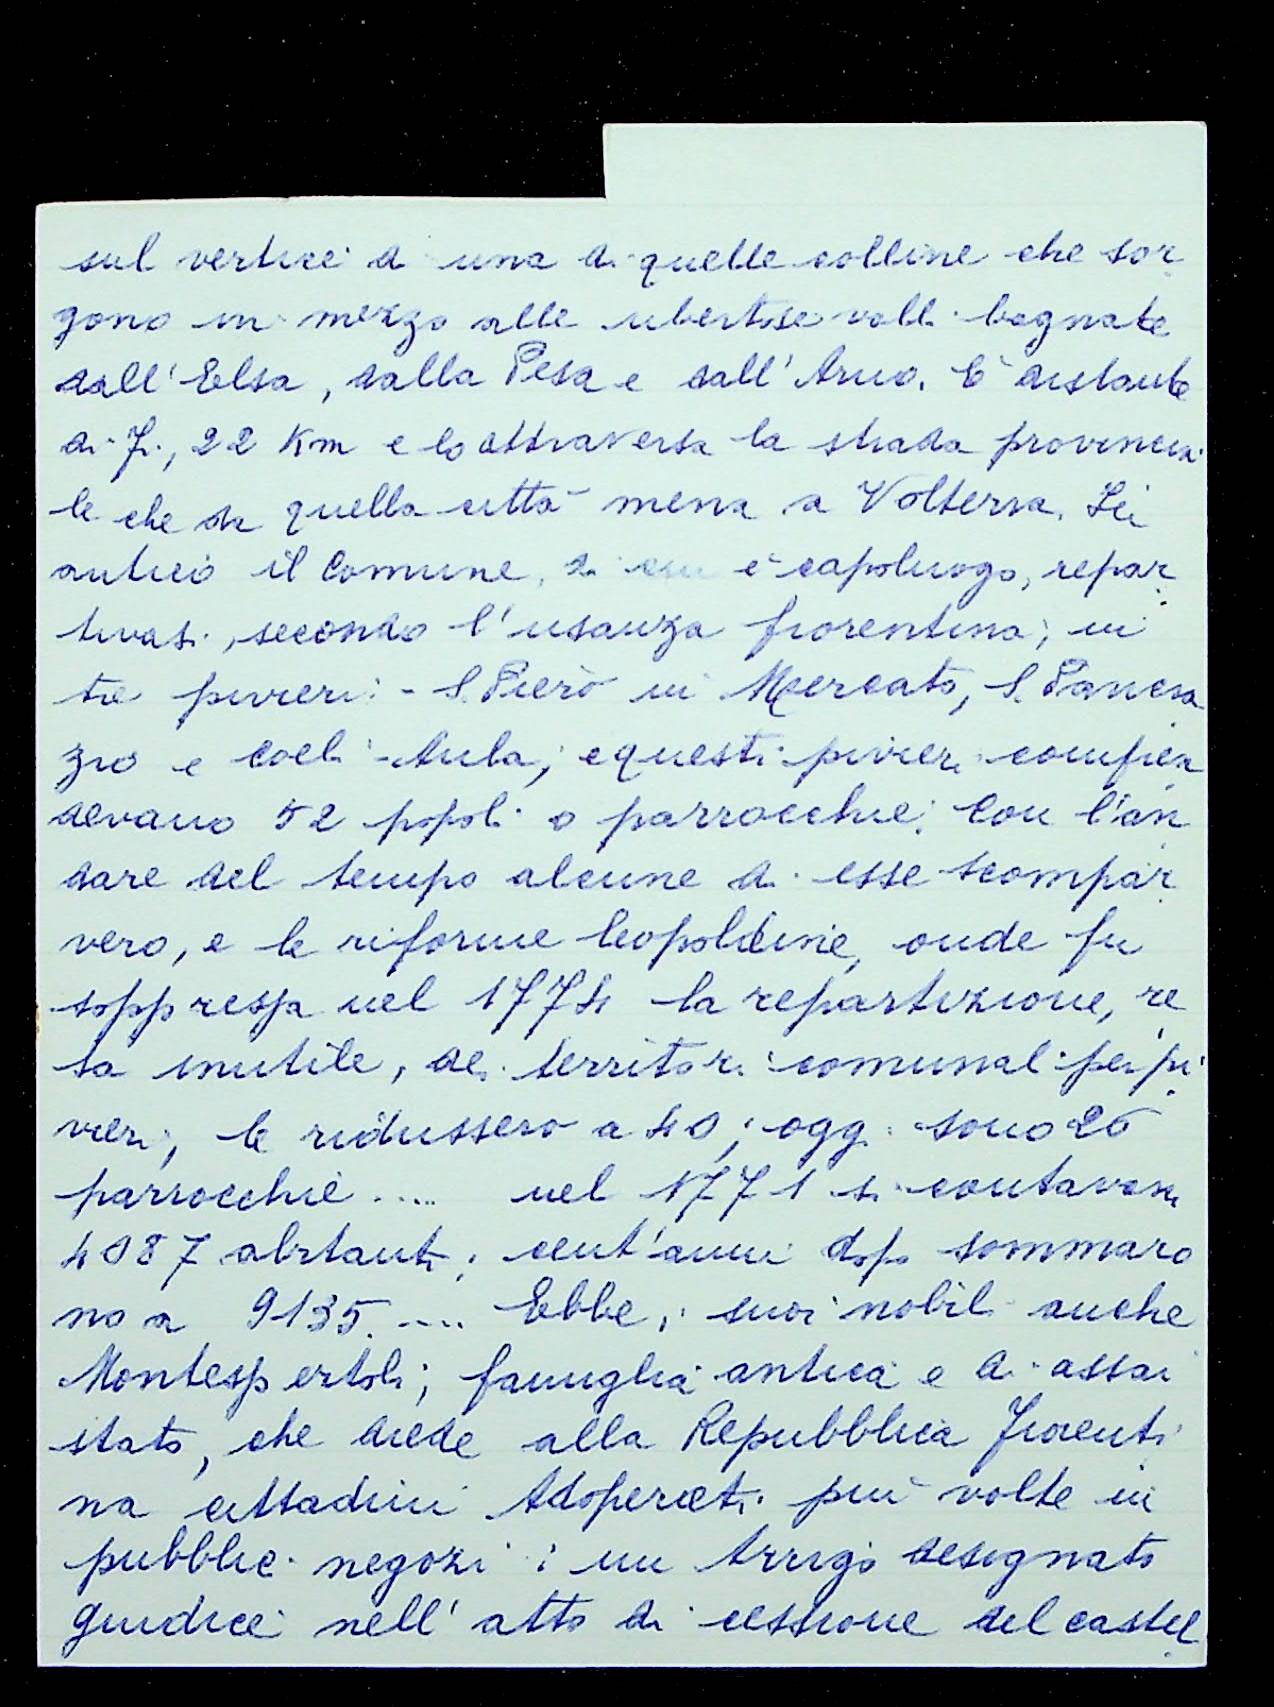 sul vertice di una di quelle colline che sor
gono in mezzo alle ubertose valli bagnate
dall'Elsa, dalla Pesa e dall'Arno. È distante
da Fi., 22 Km e lo attraversa la strada provincia
le che da quella città mena a Volterra. In
antico il Comune, di cui è capoluogo, repar
tivasi, secondo l'usanza fiorentina, in
tre pivieri: - S. Piero in Mercato, S. Pancra
zio e Coeli-Aula; e questi pivieri compren
devano 52 popoli o parrocchie. Con l'an
dare del tempo alcune di esse scompar
vero, e le riforme leopoldine, onde fu
soppressa nel 1774 la repartizione, re
sa inutile, dei territori comunali per pi
vieri, le ridussero a 40; oggi sono 26
parrocchie .... nel 1771 si contavano
4087 abitanti; cent'anni dopo sommaro
no a 9135. .... Ebbe i suoi nobili anche
Montespertoli; famiglia antica e di assai
stato, che diede alla Repubblica Fiorenti
na cittadini adoperati più volte in
pubblici negozi: un Arrigo designato
giudice nell'atto di cessione del castel